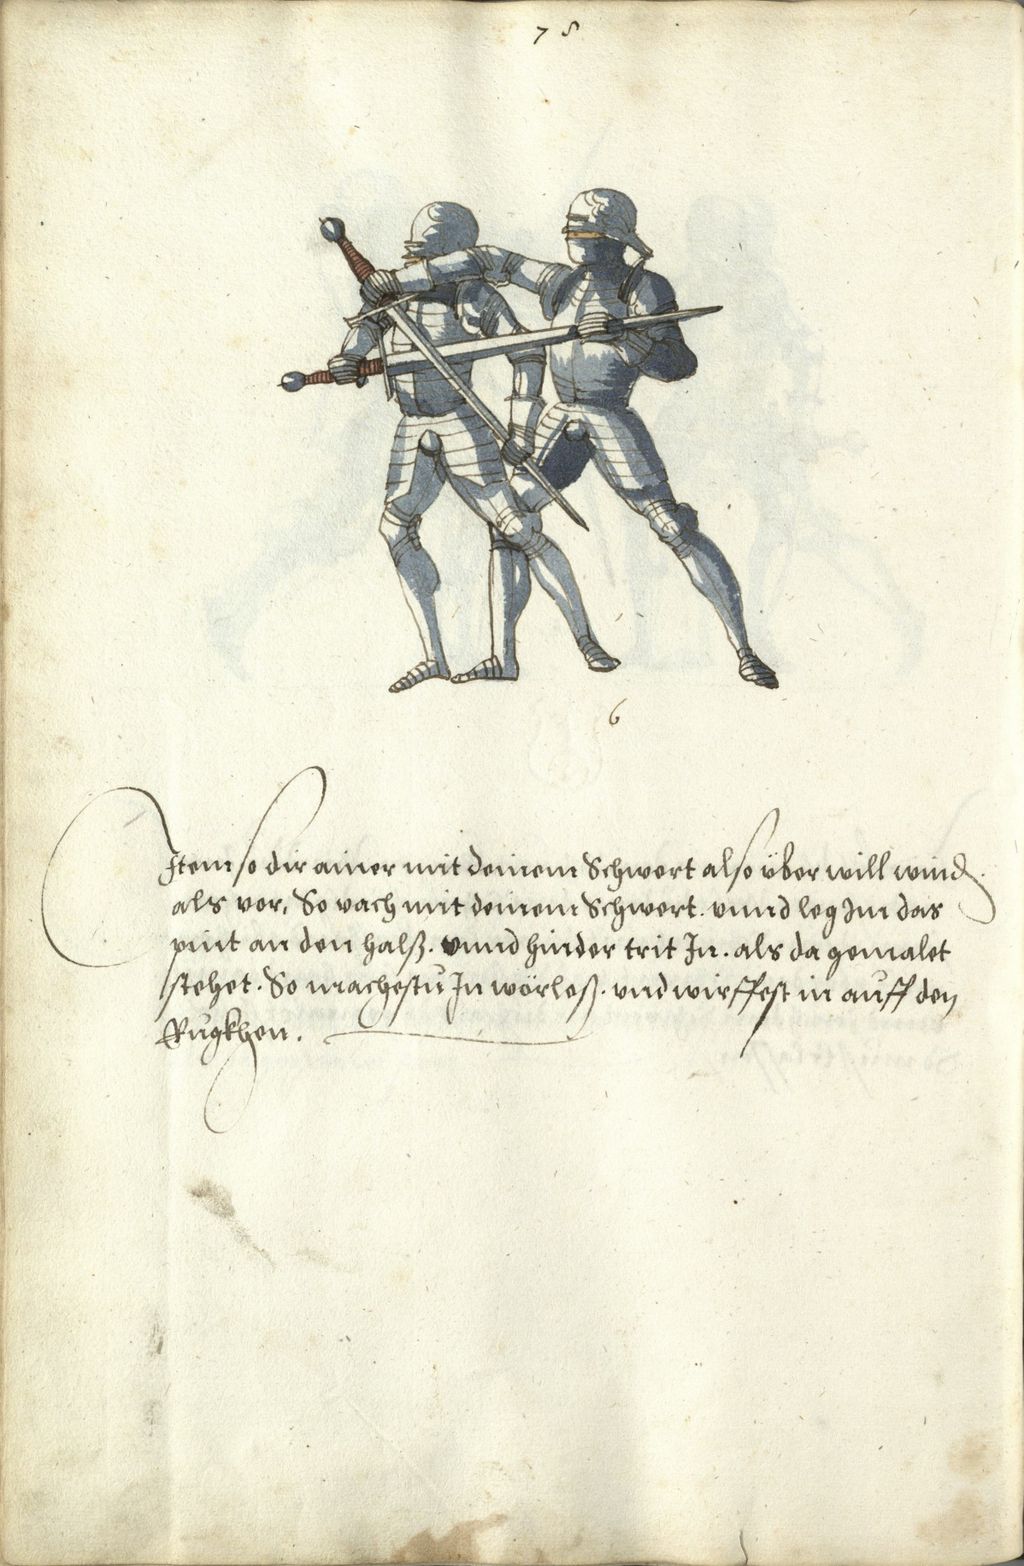 78
6
Item so dir ainer mit deinem Schwert also über will wind
als vor, So vach mit deinem Schwert. vnnd leg Im das
pint an den halß. vnnd hinder trit In. als da gemalet
stehet. So machestu In wörloß. vnd wirffest in auff den
Rugkhen.